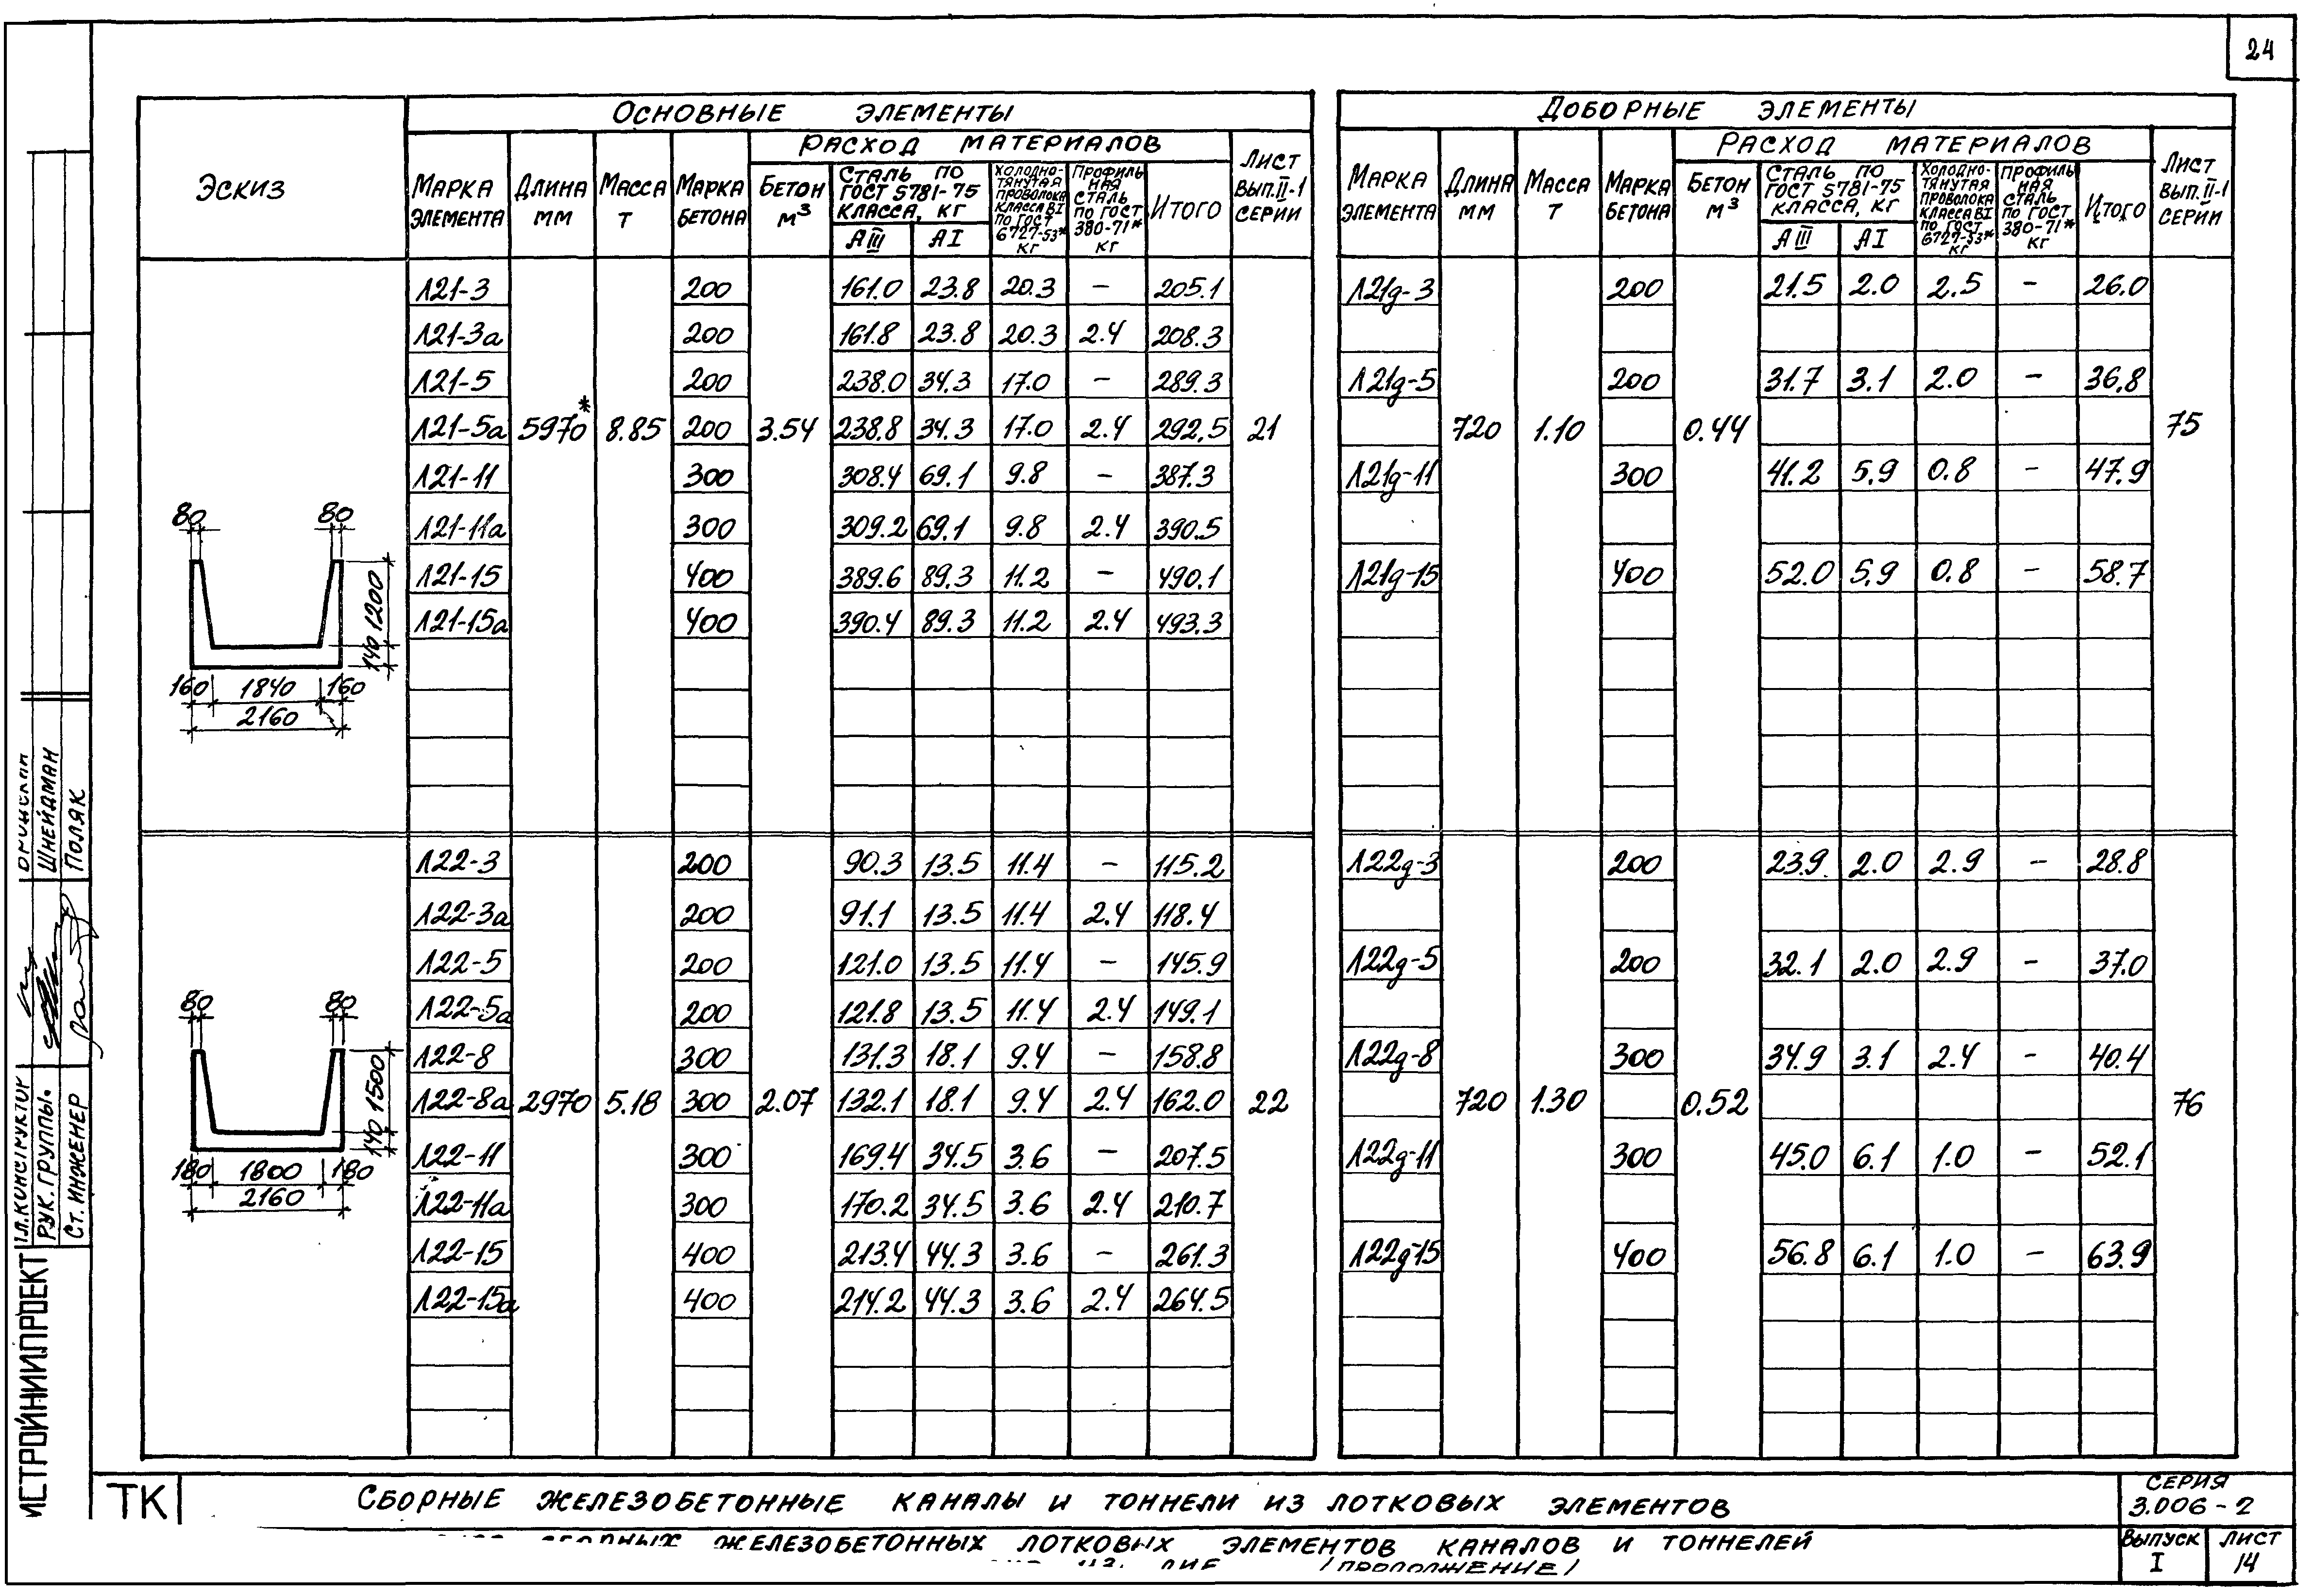 24
ОСНОВНЫЕ ЭЛЕМЕНТЫ
ЭСКИЗ
МАРКА ЭЛЕМЕНТА
ДЛИНА ММ
МАССА Т
МАРКА БЕТОНА
РАСХОД МАТЕРИАЛОВ
БЕТОН М³
СТАЛЬ ПО ГОСТ 5781-75 КЛАССА, КГ
АIII АI
ХОЛОДНО-ТЯНУТАЯ ПРОВОЛОКА КЛАССА ВI ПО ГОСТ 6727-53* КГ
ПРОФИЛЬНАЯ СТАЛЬ ПО ГОСТ 380-71* КГ
ИТОГО
ЛИСТ ВЫП. II-1 СЕРИИ
Л21-3 200 161.0 23.8 20.3 – 205.1
Л21-3а 200 161.8 23.8 20.3 2.4 208.3
Л21-5 200 238.0 34.3 17.0 – 289.3
Л21-5а 5970* 8.85 200 3.54 238.8 34.3 17.0 2.4 292.5 21
Л21-11 300 308.4 69.1 9.8 – 387.3
Л21-11а 300 309.2 69.1 9.8 2.4 390.5
Л21-15 400 389.6 89.3 11.2 – 490.1
Л21-15а 400 390.4 89.3 11.2 2.4 493.3
80 80
1200
140
160 1840 160
2160
Л22-3 200 90.3 13.5 11.4 – 115.2
Л22-3а 200 91.1 13.5 11.4 2.4 118.4
Л22-5 200 121.0 13.5 11.4 – 145.9
Л22-5а 200 121.8 13.5 11.4 2.4 149.1
Л22-8 300 131.3 18.1 9.4 – 158.8
Л22-8а 2970 5.18 300 2.07 132.1 18.1 9.4 2.4 162.0 22
Л22-11 300 169.4 34.5 3.6 – 207.5
Л22-11а 300 170.2 34.5 3.6 2.4 210.7
Л22-15 400 213.4 44.3 3.6 – 261.3
Л22-15а 400 214.2 44.3 3.6 2.4 264.5
80 80
1500
140
180 1800 180
2160
ДОБОРНЫЕ ЭЛЕМЕНТЫ
МАРКА ЭЛЕМЕНТА
ДЛИНА ММ
МАССА Т
МАРКА БЕТОНА
РАСХОД МАТЕРИАЛОВ
БЕТОН М³
СТАЛЬ ПО ГОСТ 5781-75 КЛАССА, КГ
АIII АI
ХОЛОДНО-ТЯНУТАЯ ПРОВОЛОКА КЛАССА ВI ПО ГОСТ 6727-53* КГ
ПРОФИЛЬНАЯ СТАЛЬ ПО ГОСТ 380-71* КГ
ИТОГО
ЛИСТ ВЫП. II-1 СЕРИИ
Л21д-3 200 21.5 2.0 2.5 – 26.0
Л21д-5 200 31.7 3.1 2.0 – 36.8
720 1.10 0.44 75
Л21д-11 300 41.2 5.9 0.8 – 47.9
Л21д-15 400 52.0 5.9 0.8 – 58.7
Л22д-3 200 23.9 2.0 2.9 – 28.8
Л22д-5 200 32.1 2.0 2.9 – 37.0
Л22д-8 300 34.9 3.1 2.4 – 40.4
720 1.30 0.52 76
Л22д-11 300 45.0 6.1 1.0 – 52.1
Л22д-15 400 56.8 6.1 1.0 – 63.9
ГЛ. КОНСТРУКТОР
РУК. ГРУППЫ ШНЕЙДМАН
СТ. ИНЖЕНЕР ПОЛЯК
ИСТРОЙНИИПРОЕКТ
ТК
СБОРНЫЕ ЖЕЛЕЗОБЕТОННЫЕ КАНАЛЫ И ТОННЕЛИ ИЗ ЛОТКОВЫХ ЭЛЕМЕНТОВ
СБОРНЫХ ЖЕЛЕЗОБЕТОННЫХ ЛОТКОВЫХ ЭЛЕМЕНТОВ КАНАЛОВ И ТОННЕЛЕЙ
(ПРОДОЛЖЕНИЕ)
СЕРИЯ 3.006-2
ВЫПУСК I
ЛИСТ 14